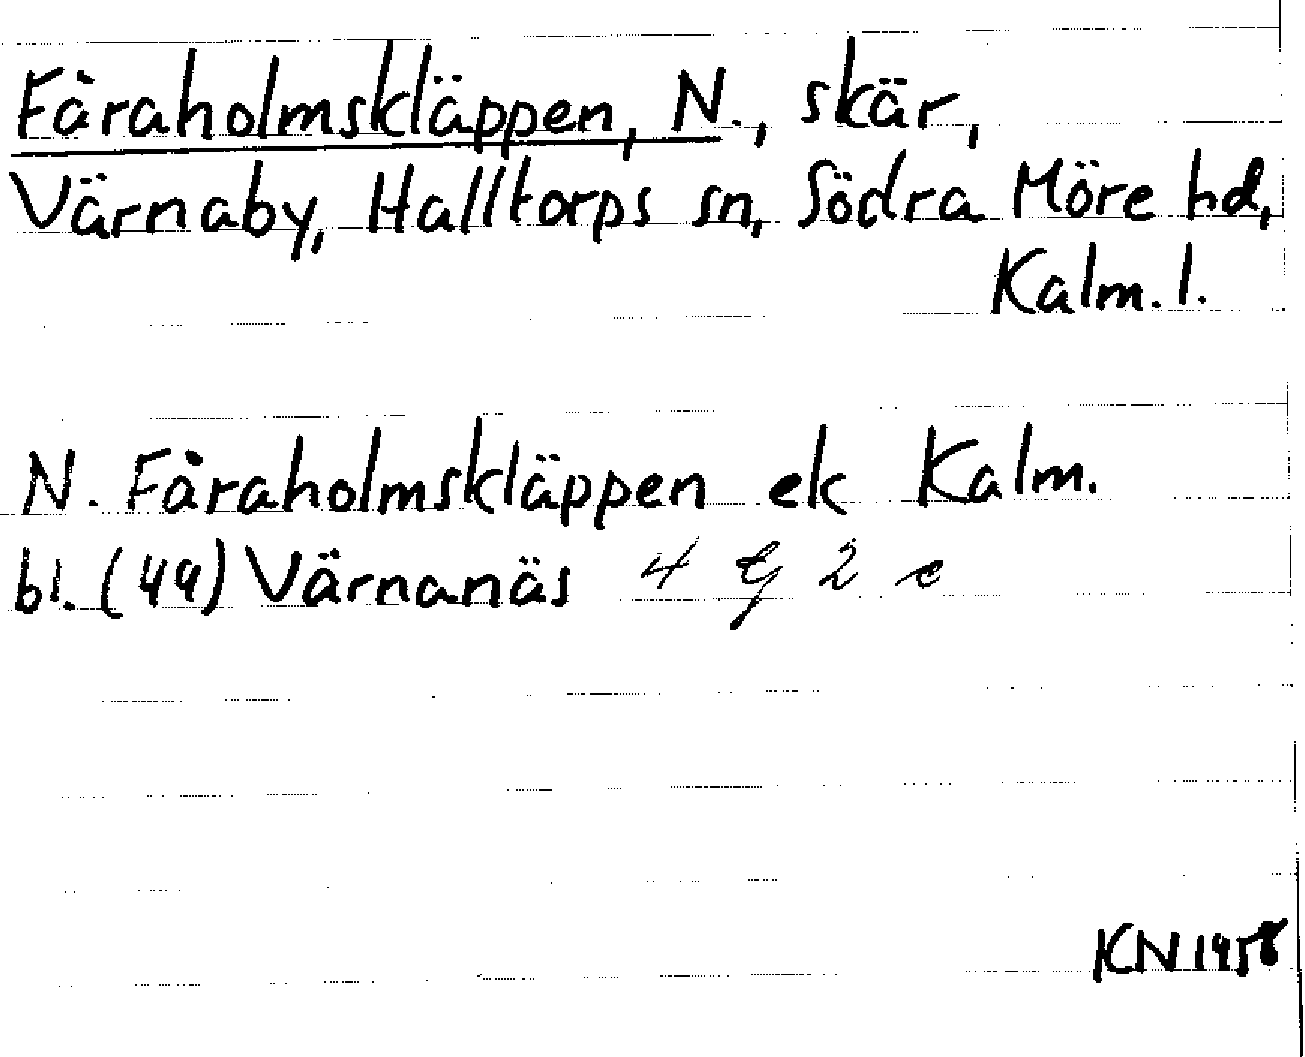 Fåraholmskläppen, N., skär,
Värnaby, Halltorps sn, Södra Möre hd,
Kalm. l.
N. Fåraholmskläppen ek Kalm.
bl. (49) Värnanäs 4 G 2 e
KN 1958